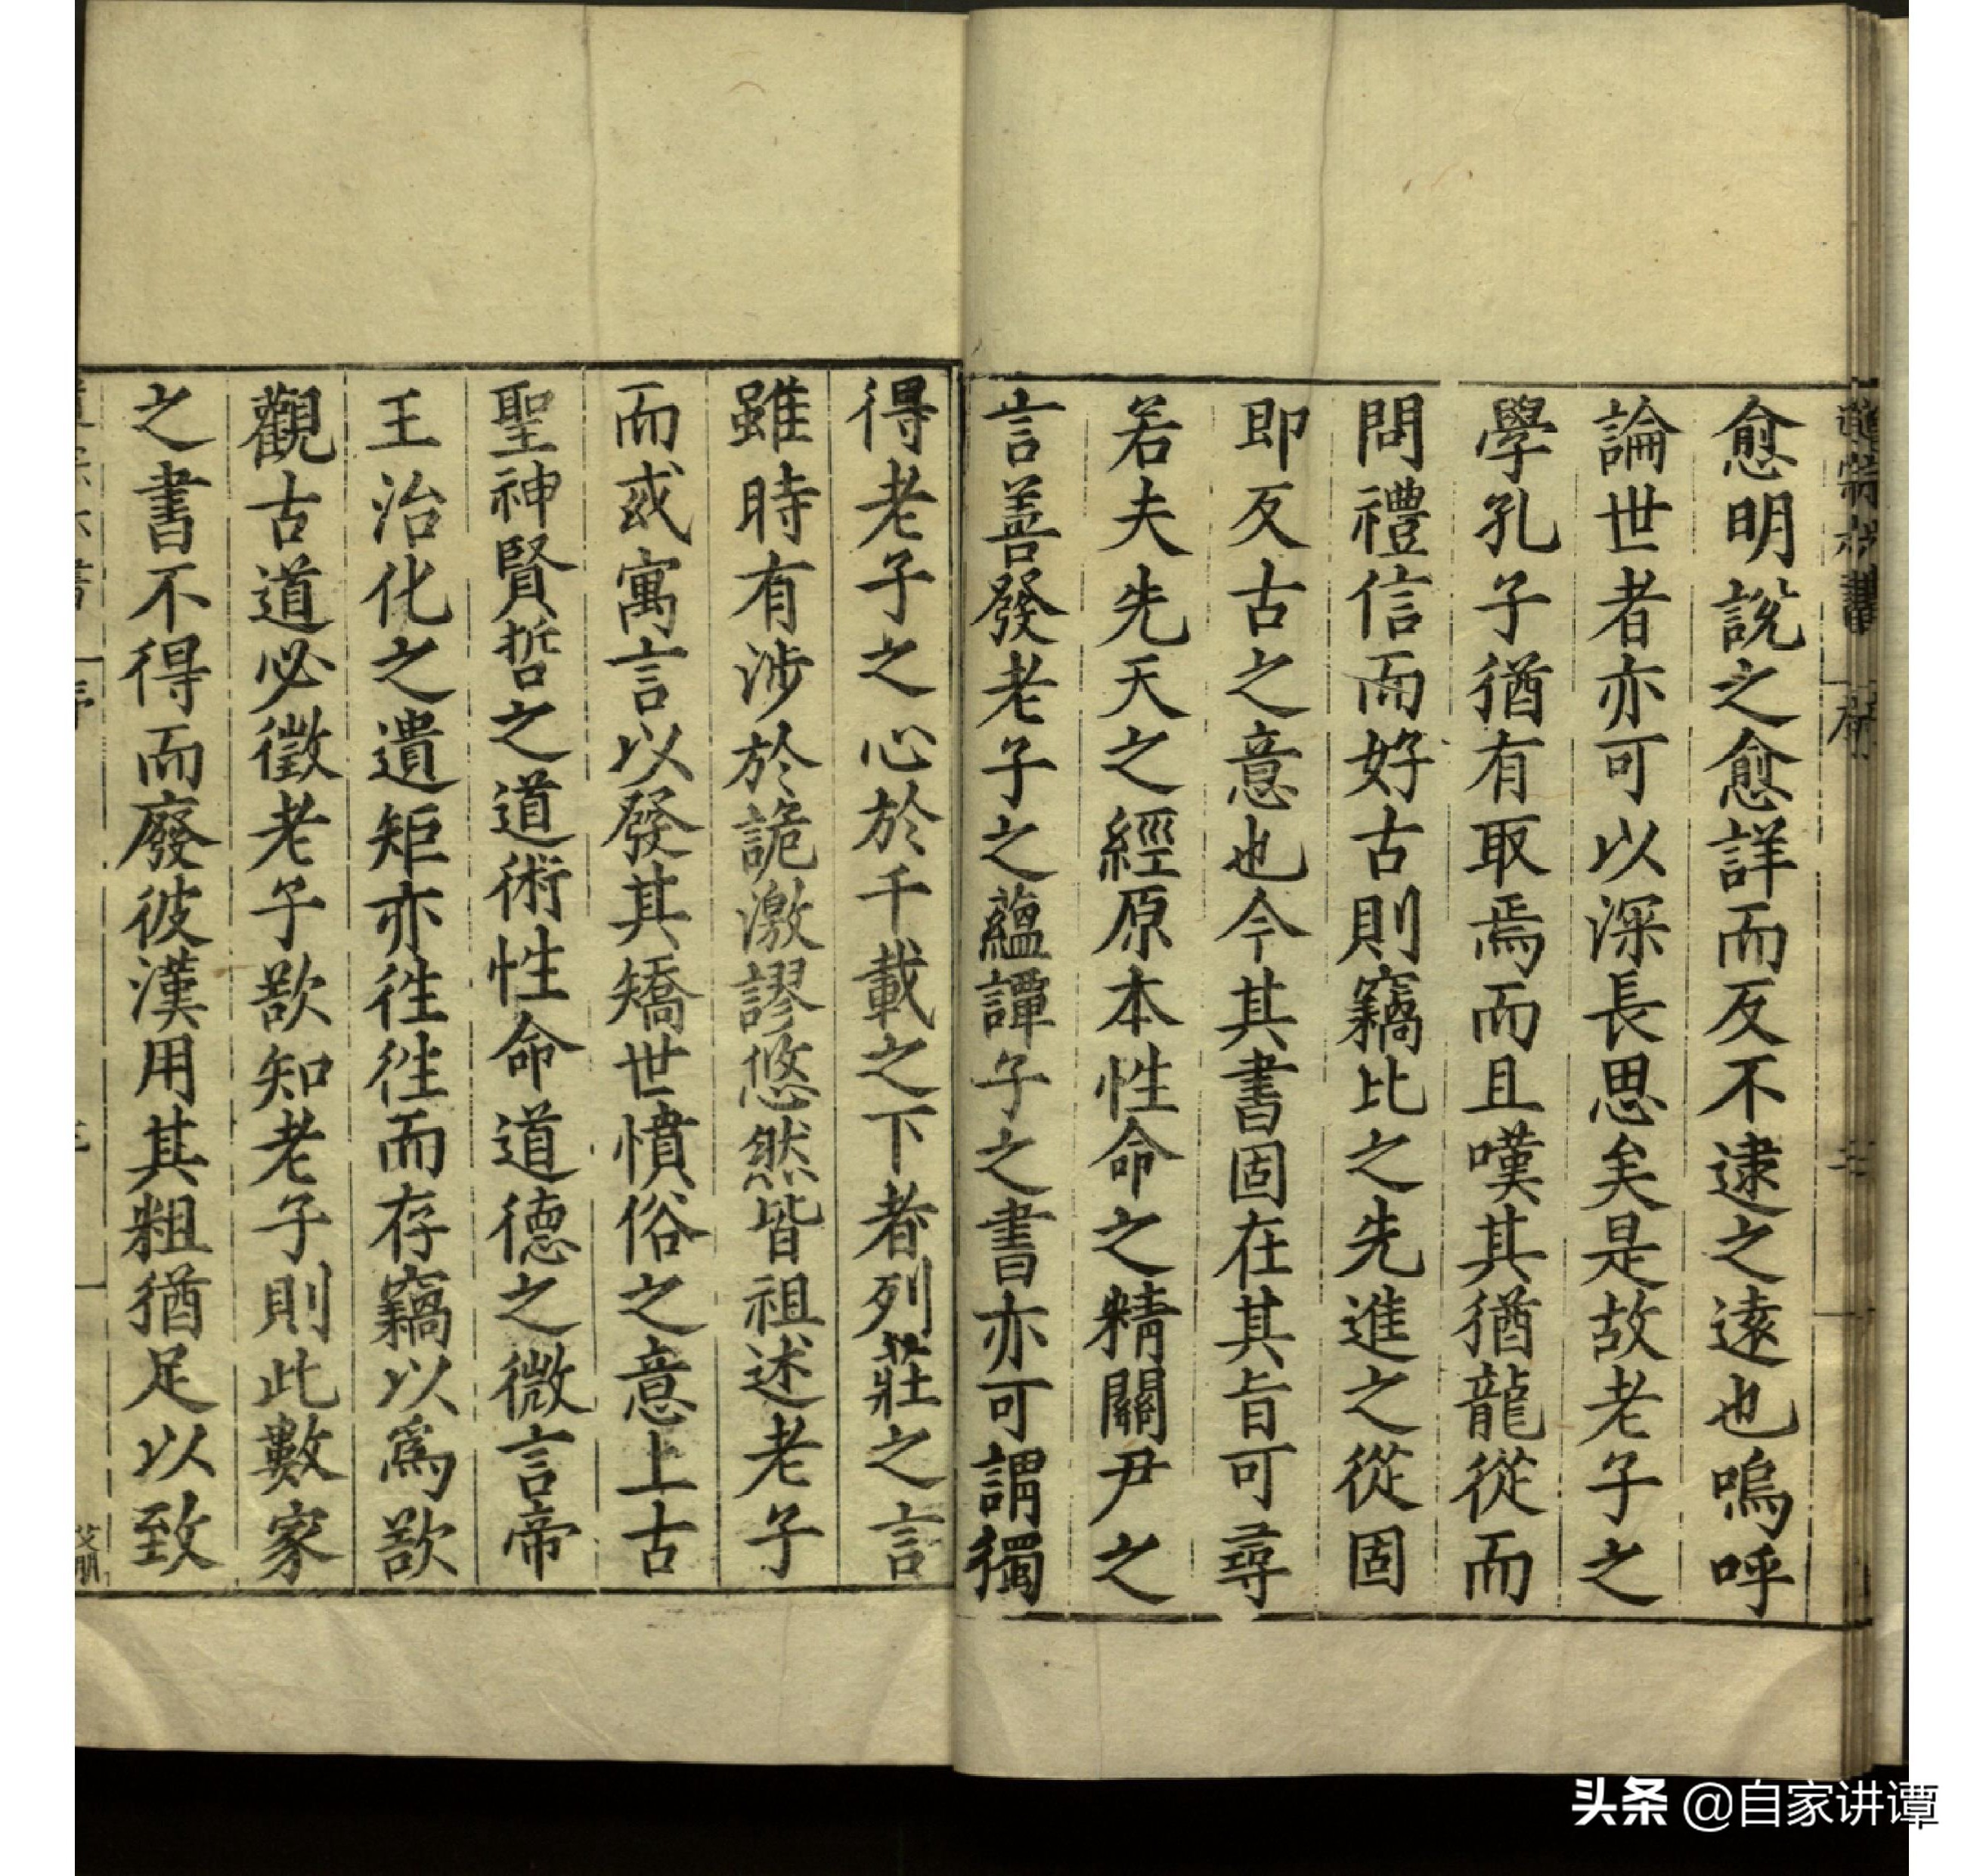 愈明說之愈詳而反不逮之遠也嗚呼
論世者亦可以深長思矣是故老子之
學孔子猶有取焉而且嘆其猶龍從而
問禮信而好古則竊比之先進之從固
即反古之意也今其書固在其旨可尋
若夫先天之經原本性命之精關尹之
言善發老子之蘊譚子之書亦可謂獨
得老子之心於千載之下者列莊之言
雖時有涉於詭激謬悠然皆祖述老子
而或寓言以發其矯世憤俗之意上古
聖神賢哲之道術性命道德之微言帝
王治化之遺矩亦徃徃而存竊以爲欲
觀古道必徵老子欲知老子則此數家
之書不得而廢彼漢用其粗猶足以致
头条 @自家讲谭